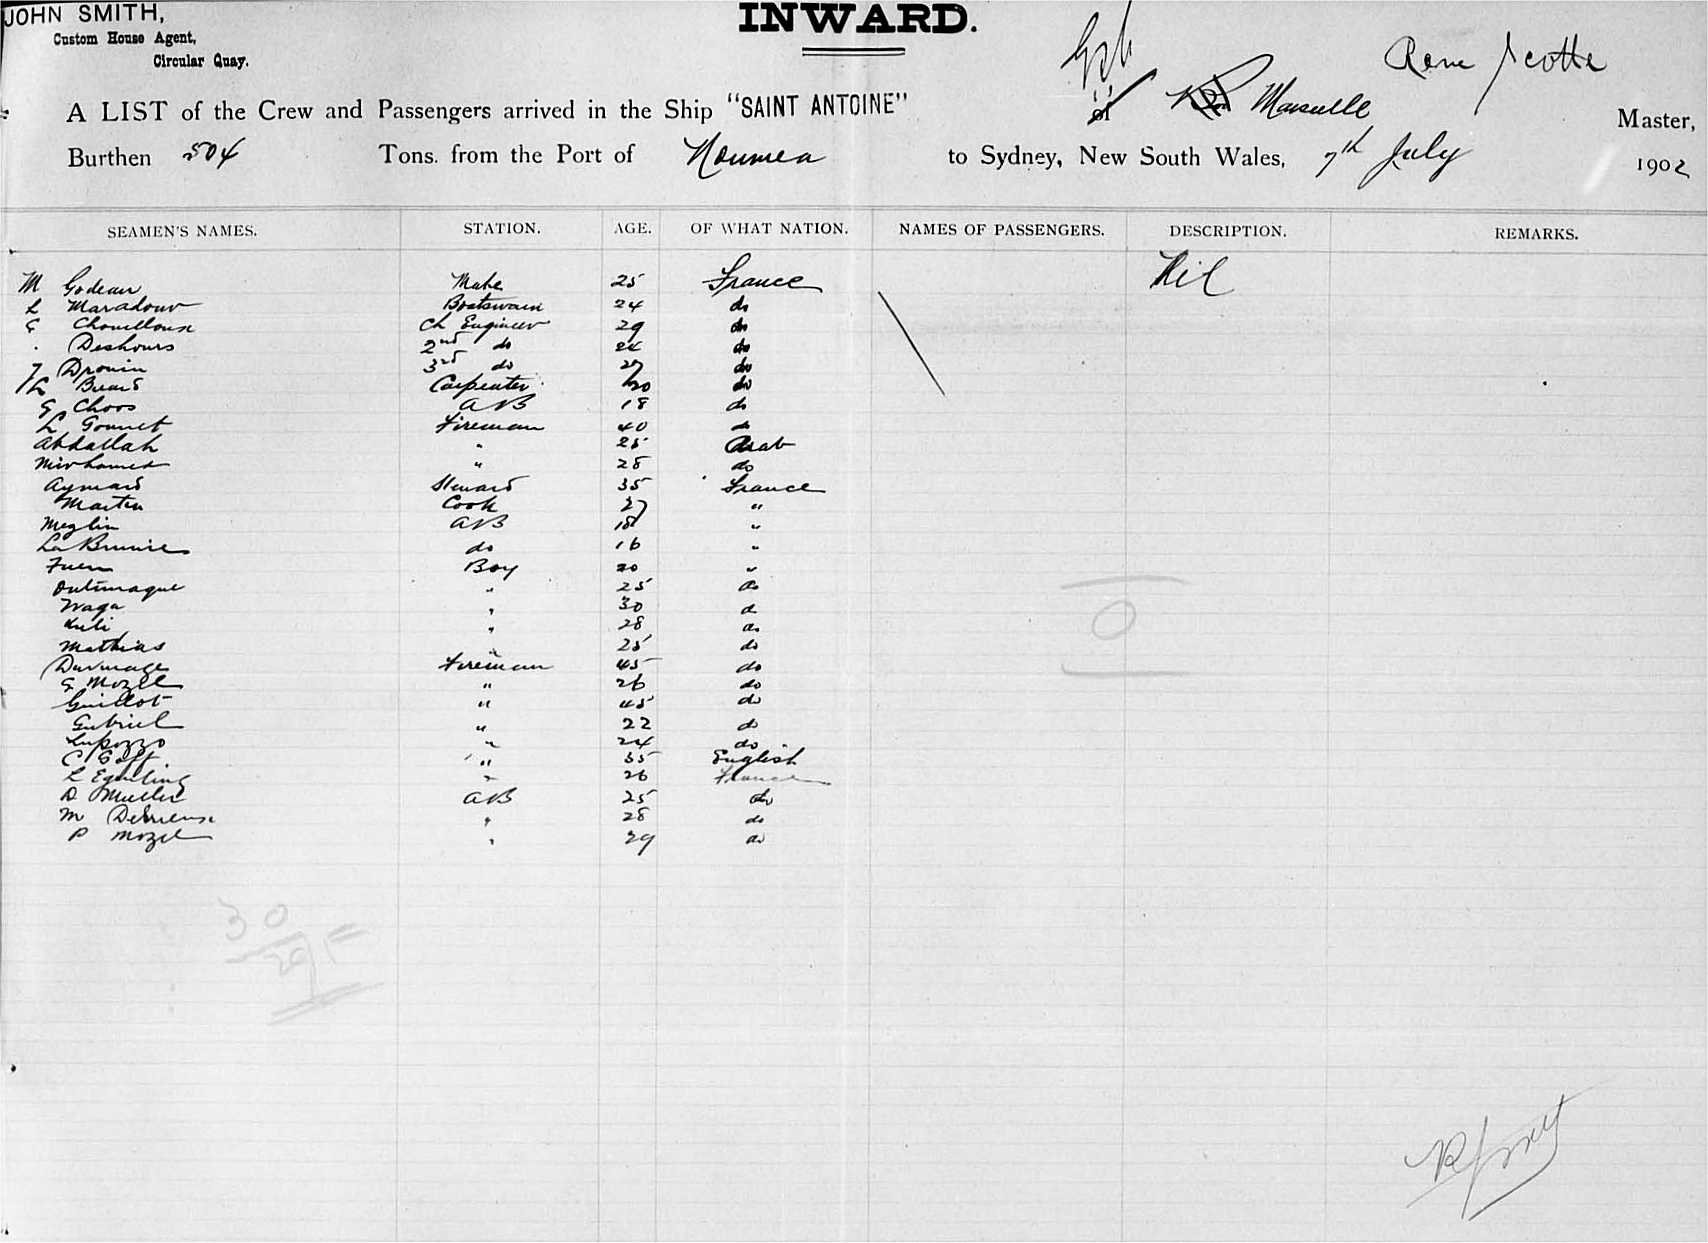 JOHN SMITH,
Custom House Agent,
Circular Quay.
INWARD.
Rene Scotte
A LIST of the Crew and Passengers arrived in the Ship "SAINT ANTOINE" of Marseille Master,
Burthen 504 Tons. from the Port of Noumea to Sydney, New South Wales, 7th July 1902
SEAMEN'S NAMES. STATION. AGE. OF WHAT NATION. NAMES OF PASSENGERS. DESCRIPTION. REMARKS.
M Godeau Mate 25 France Nil
L Maradour Boatswain 24 do
G Chouilloux Ch Engineer 29 do
Deshours 2nd do 24 do
J Drouin 3rd do 27 do
Carpenter 20 do
G Choos AB 18 do
L Gounet Fireman 40 do
Abdallah " 25 Arab
" 28 do
Aymard Steward 35 France
Martin Cook 27 "
Meglin AB 18 "
do 16 "
Boy 20 "
Outimaque " 25 do
Waga " 30 do
" 28 do
Mathias " 25 do
Fireman 45 do
G Mozel " 26 do
Guillot " 45 do
Gabriel " 22 do
Lupozzo " 24 do
C Goff " 35 English
" 26 France
D Muller AB 25 do
M " 28 do
P Mozel " 29 do
0
30
29 1 =